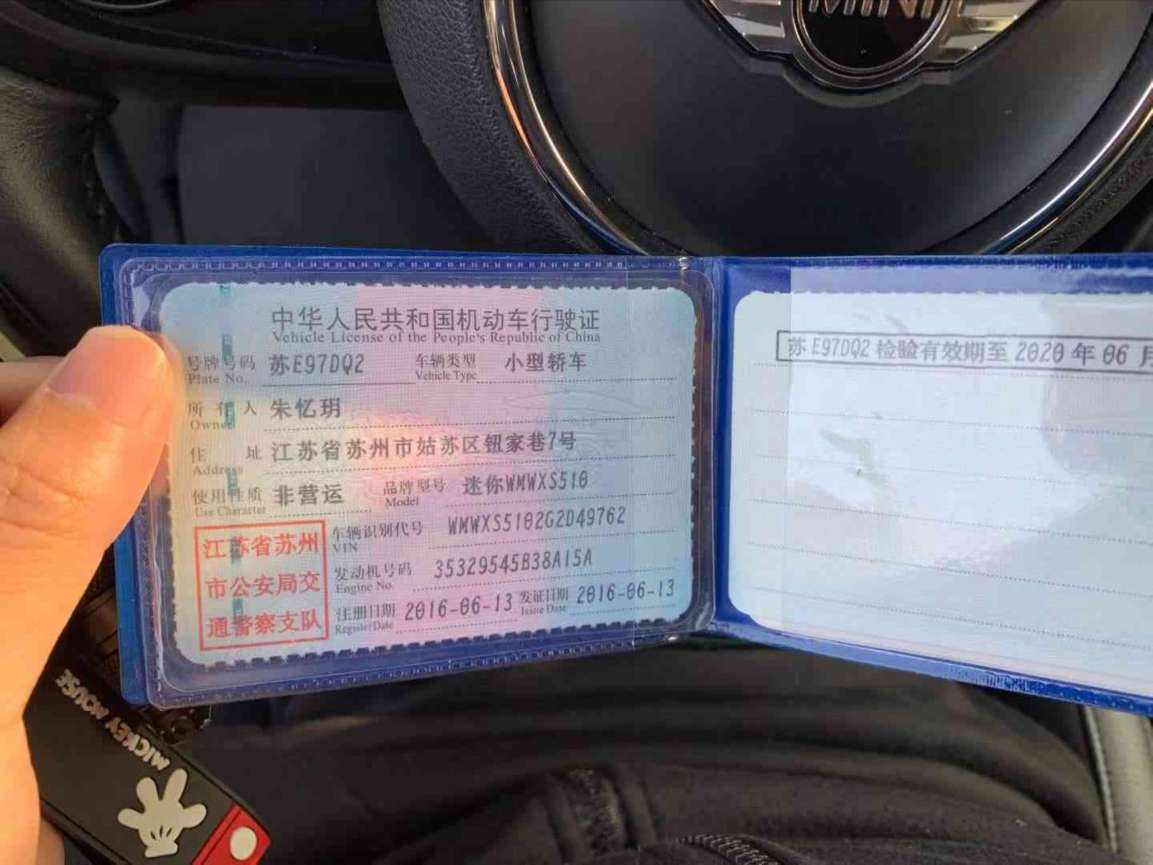 MINI
中华人民共和国机动车行驶证
Vehicle License of the People's Republic of China
号牌号码 苏E97DQ2 车辆类型 小型轿车
Plate No. Vehicle Type
所有人 朱忆玥
Owner
住址 江苏省苏州市姑苏区钮家巷7号
Address
使用性质 非营运 品牌型号 迷你WMWXS510
Use Character Model
江苏省苏州
市公安局交
通警察支队
车辆识别代号 WMWXS5102G2D49762
VIN
发动机号码 35329545B38A15A
Engine No.
注册日期 2016-06-13 发证日期 2016-06-13
Register Date Issue Date
苏E97DQ2 检验有效期至 2020 年 06 月
MICKEY MOUSE